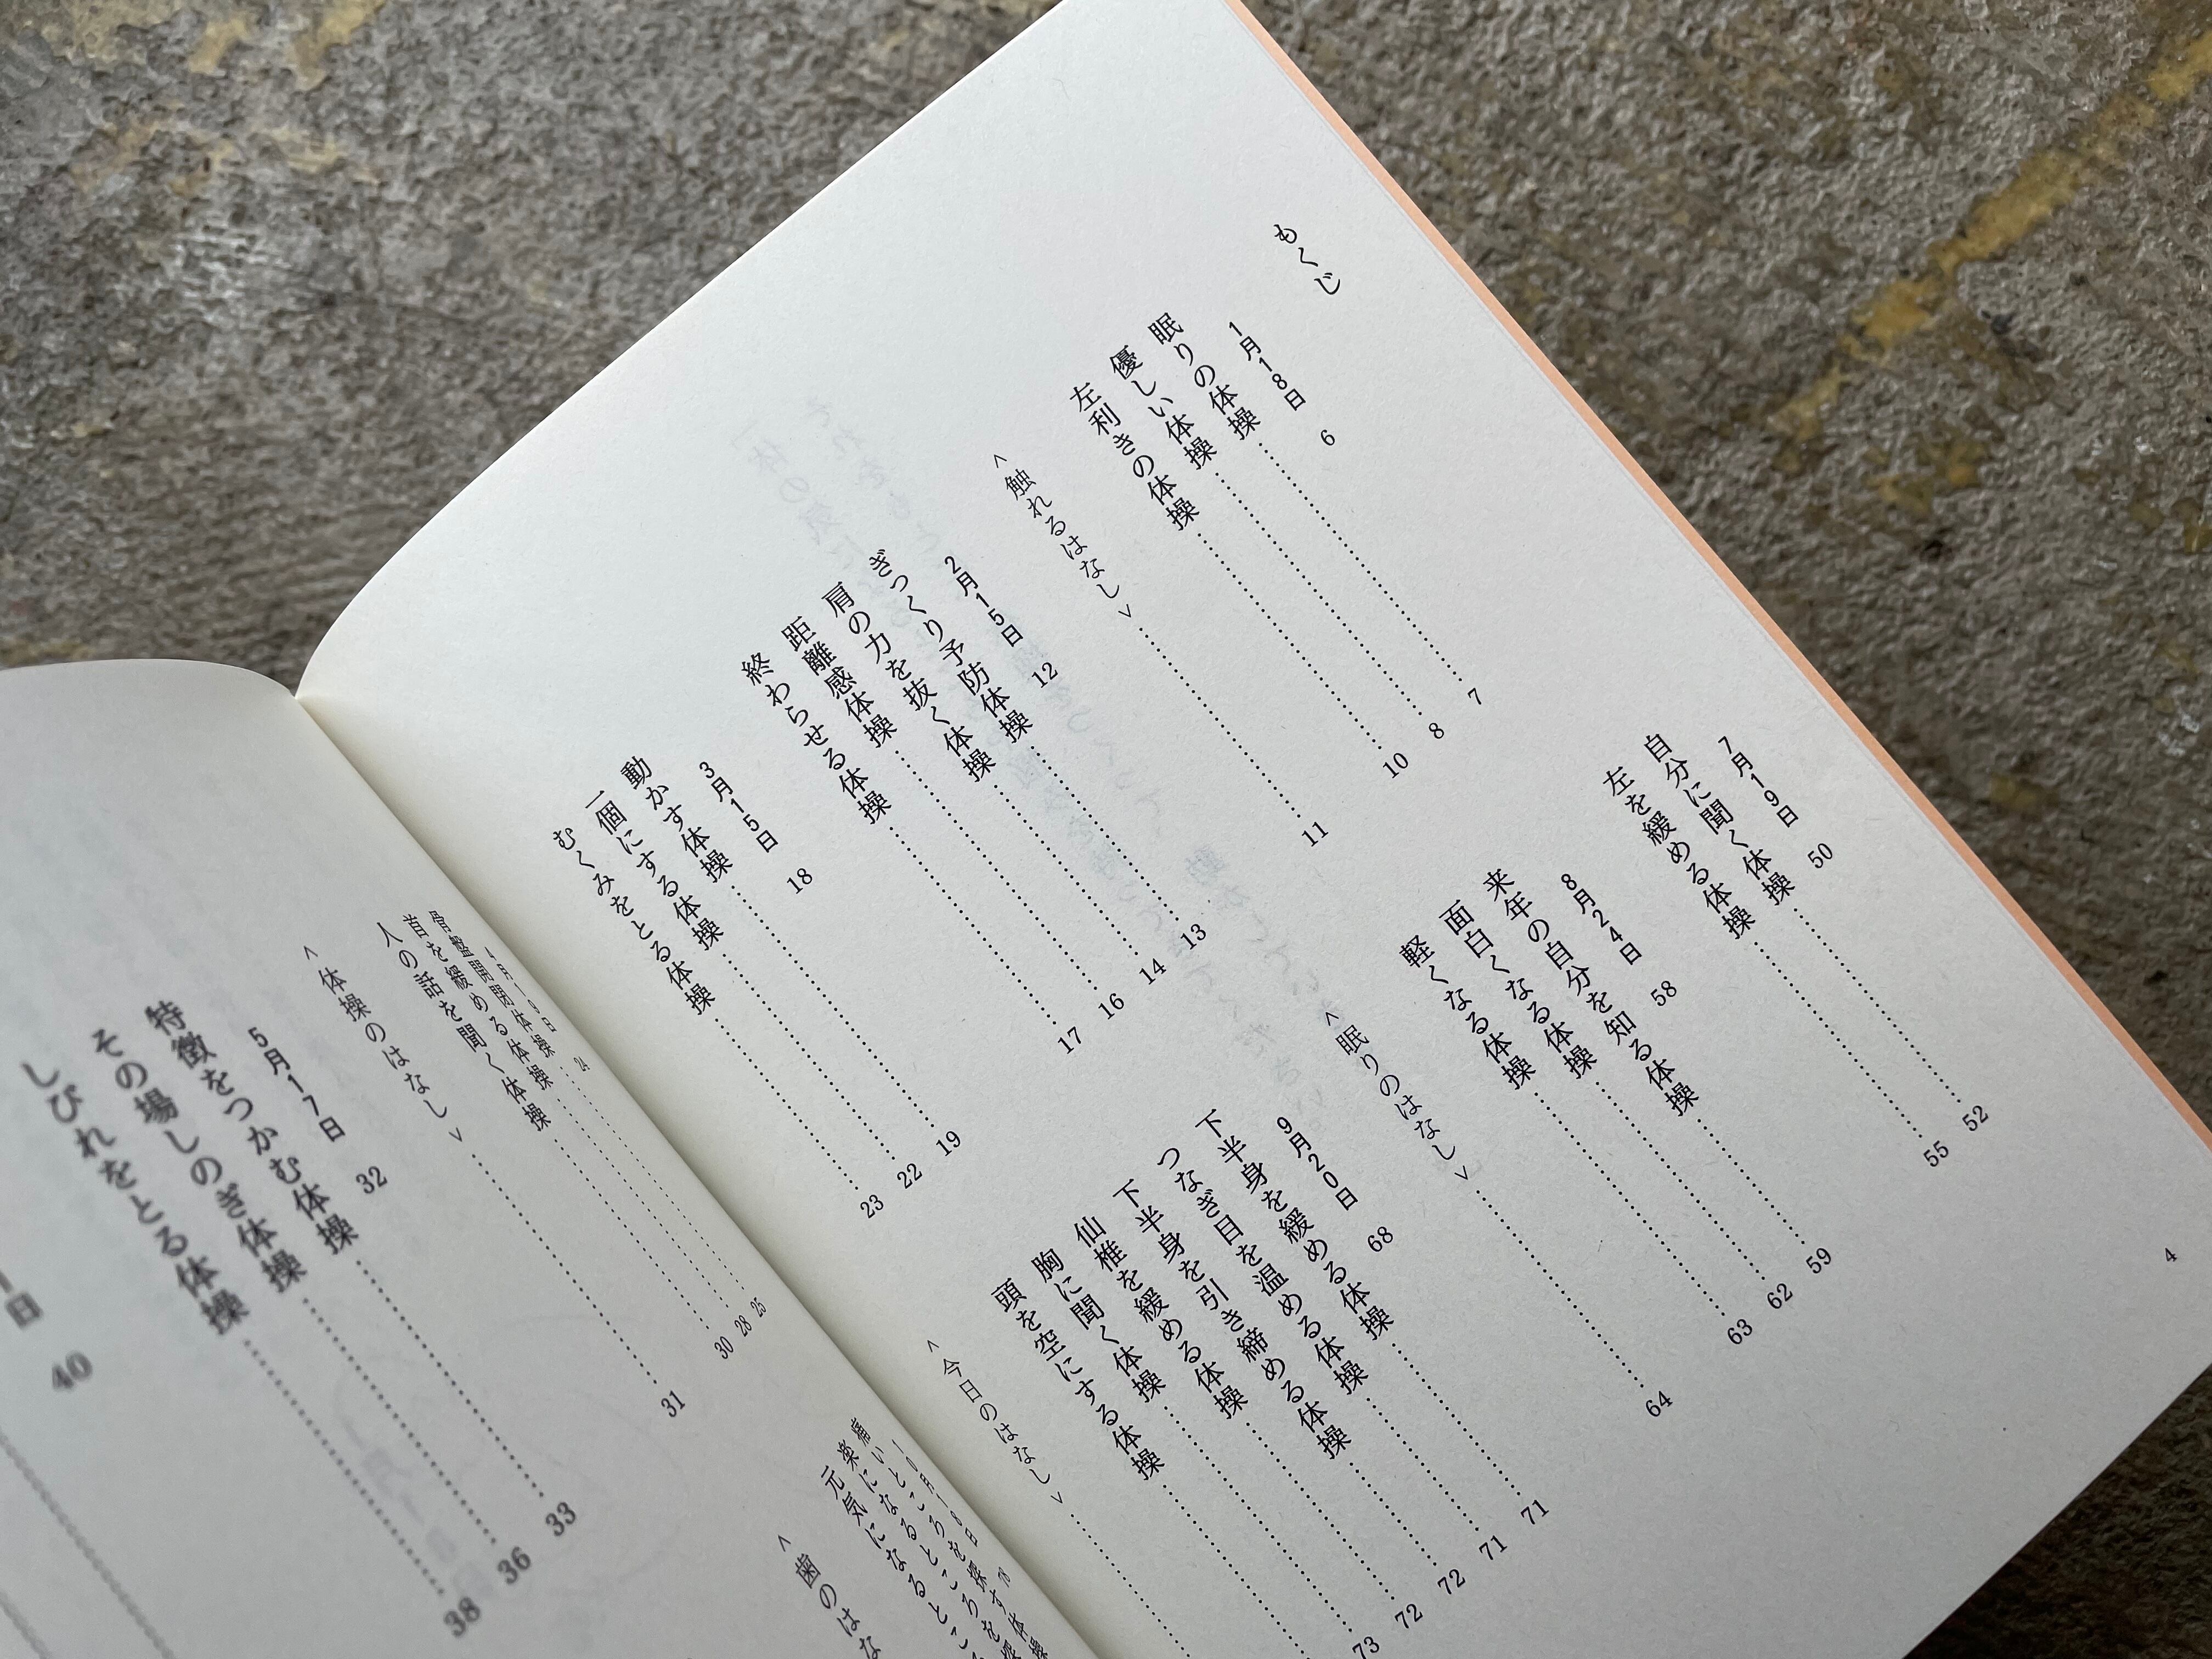 もくじ
1月18日 6
眠りの体操 7
優しい体操 8
左利きの体操 10
<触れるはなし> 11
2月15日 12
ぎっくり予防体操 13
肩の力を抜く体操 14
距離感体操 16
終わらせる体操 17
3月15日 18
動かす体操 19
一個にする体操 22
むくみをとる体操 23
4月19日 24
骨盤開閉体操 25
首を緩める体操 28
人の話を聞く体操 30
<体操のはなし> 31
5月17日 32
特徴をつかむ体操 33
その場しのぎ体操 36
しびれをとる体操 38
1日 40
7月19日 50
自分に聞く体操 52
左を緩める体操 55
8月24日 58
来年の自分を知る体操 59
面白くなる体操 62
軽くなる体操 63
<眠りのはなし> 64
9月20日 68
下半身を緩める体操 71
つなぎ目を温める体操 71
下半身を引き締める体操 72
仙椎を緩める体操 72
胸に聞く体操 73
頭を空にする体操
<今日のはなし>
10月18日 78
痛いところを探す体操
楽になるところを探
元気になるとこ
<歯のはな
4